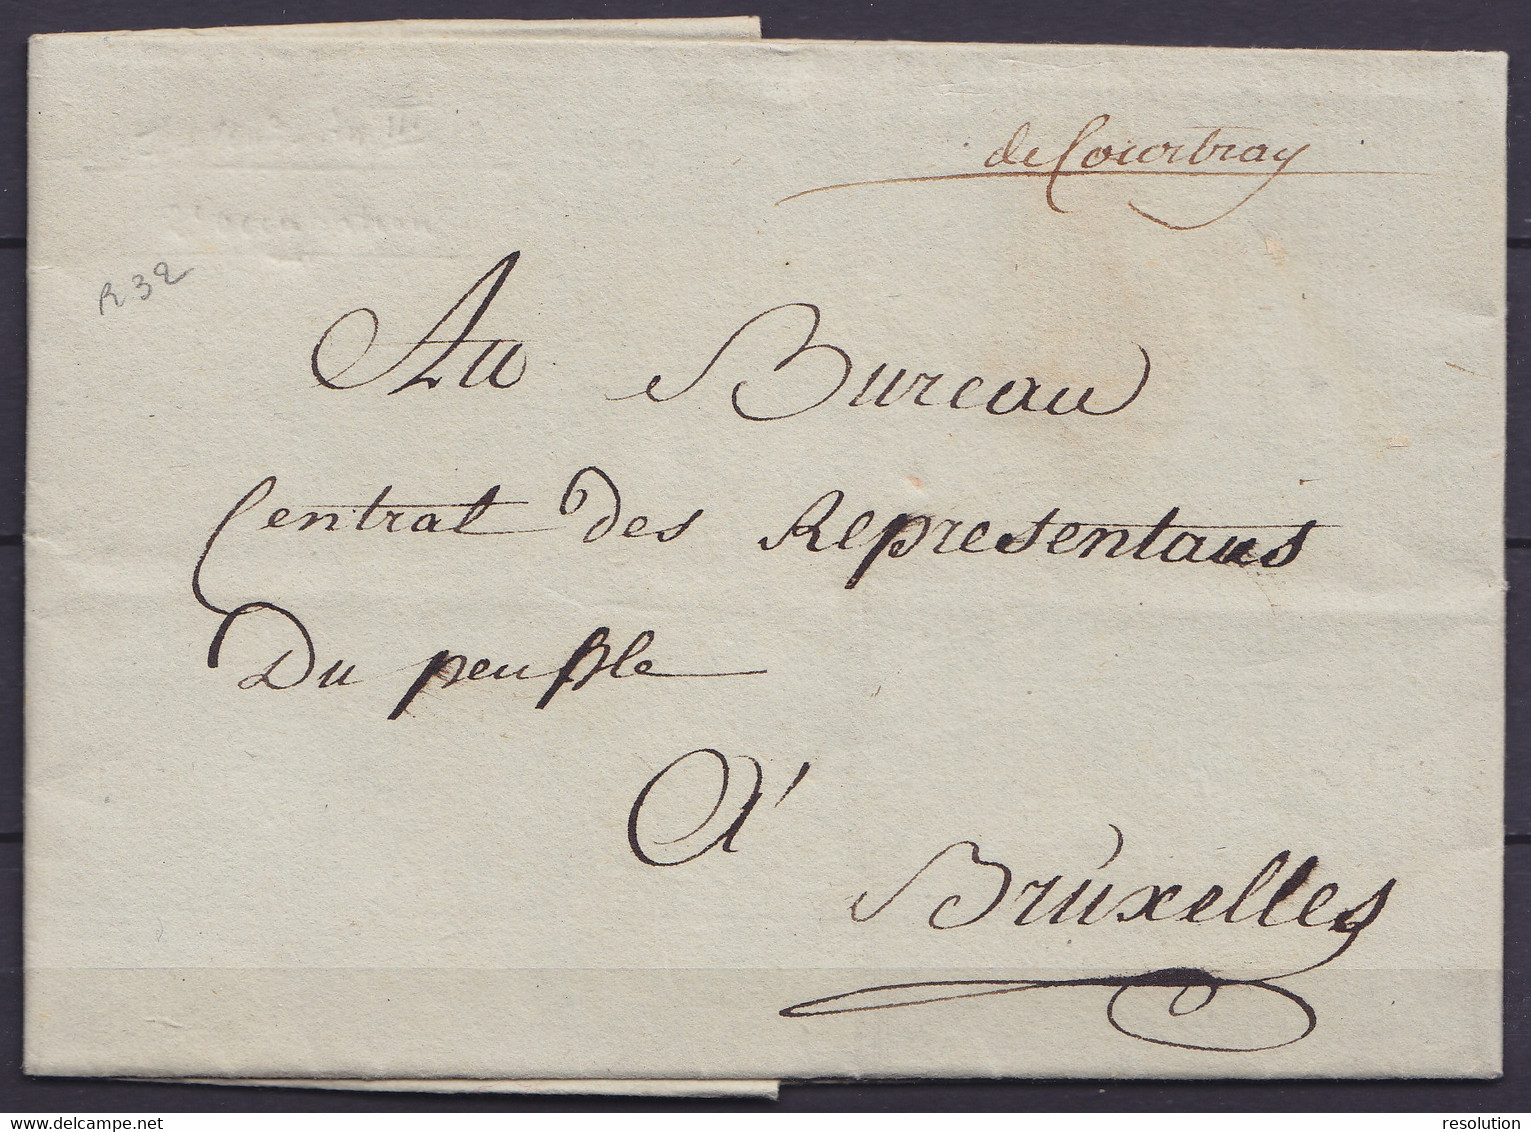 de Courtray
R 32
Au Bureau
Central des Representans
Du peuple
A'
Bruxelles
delcampe.net
resolution